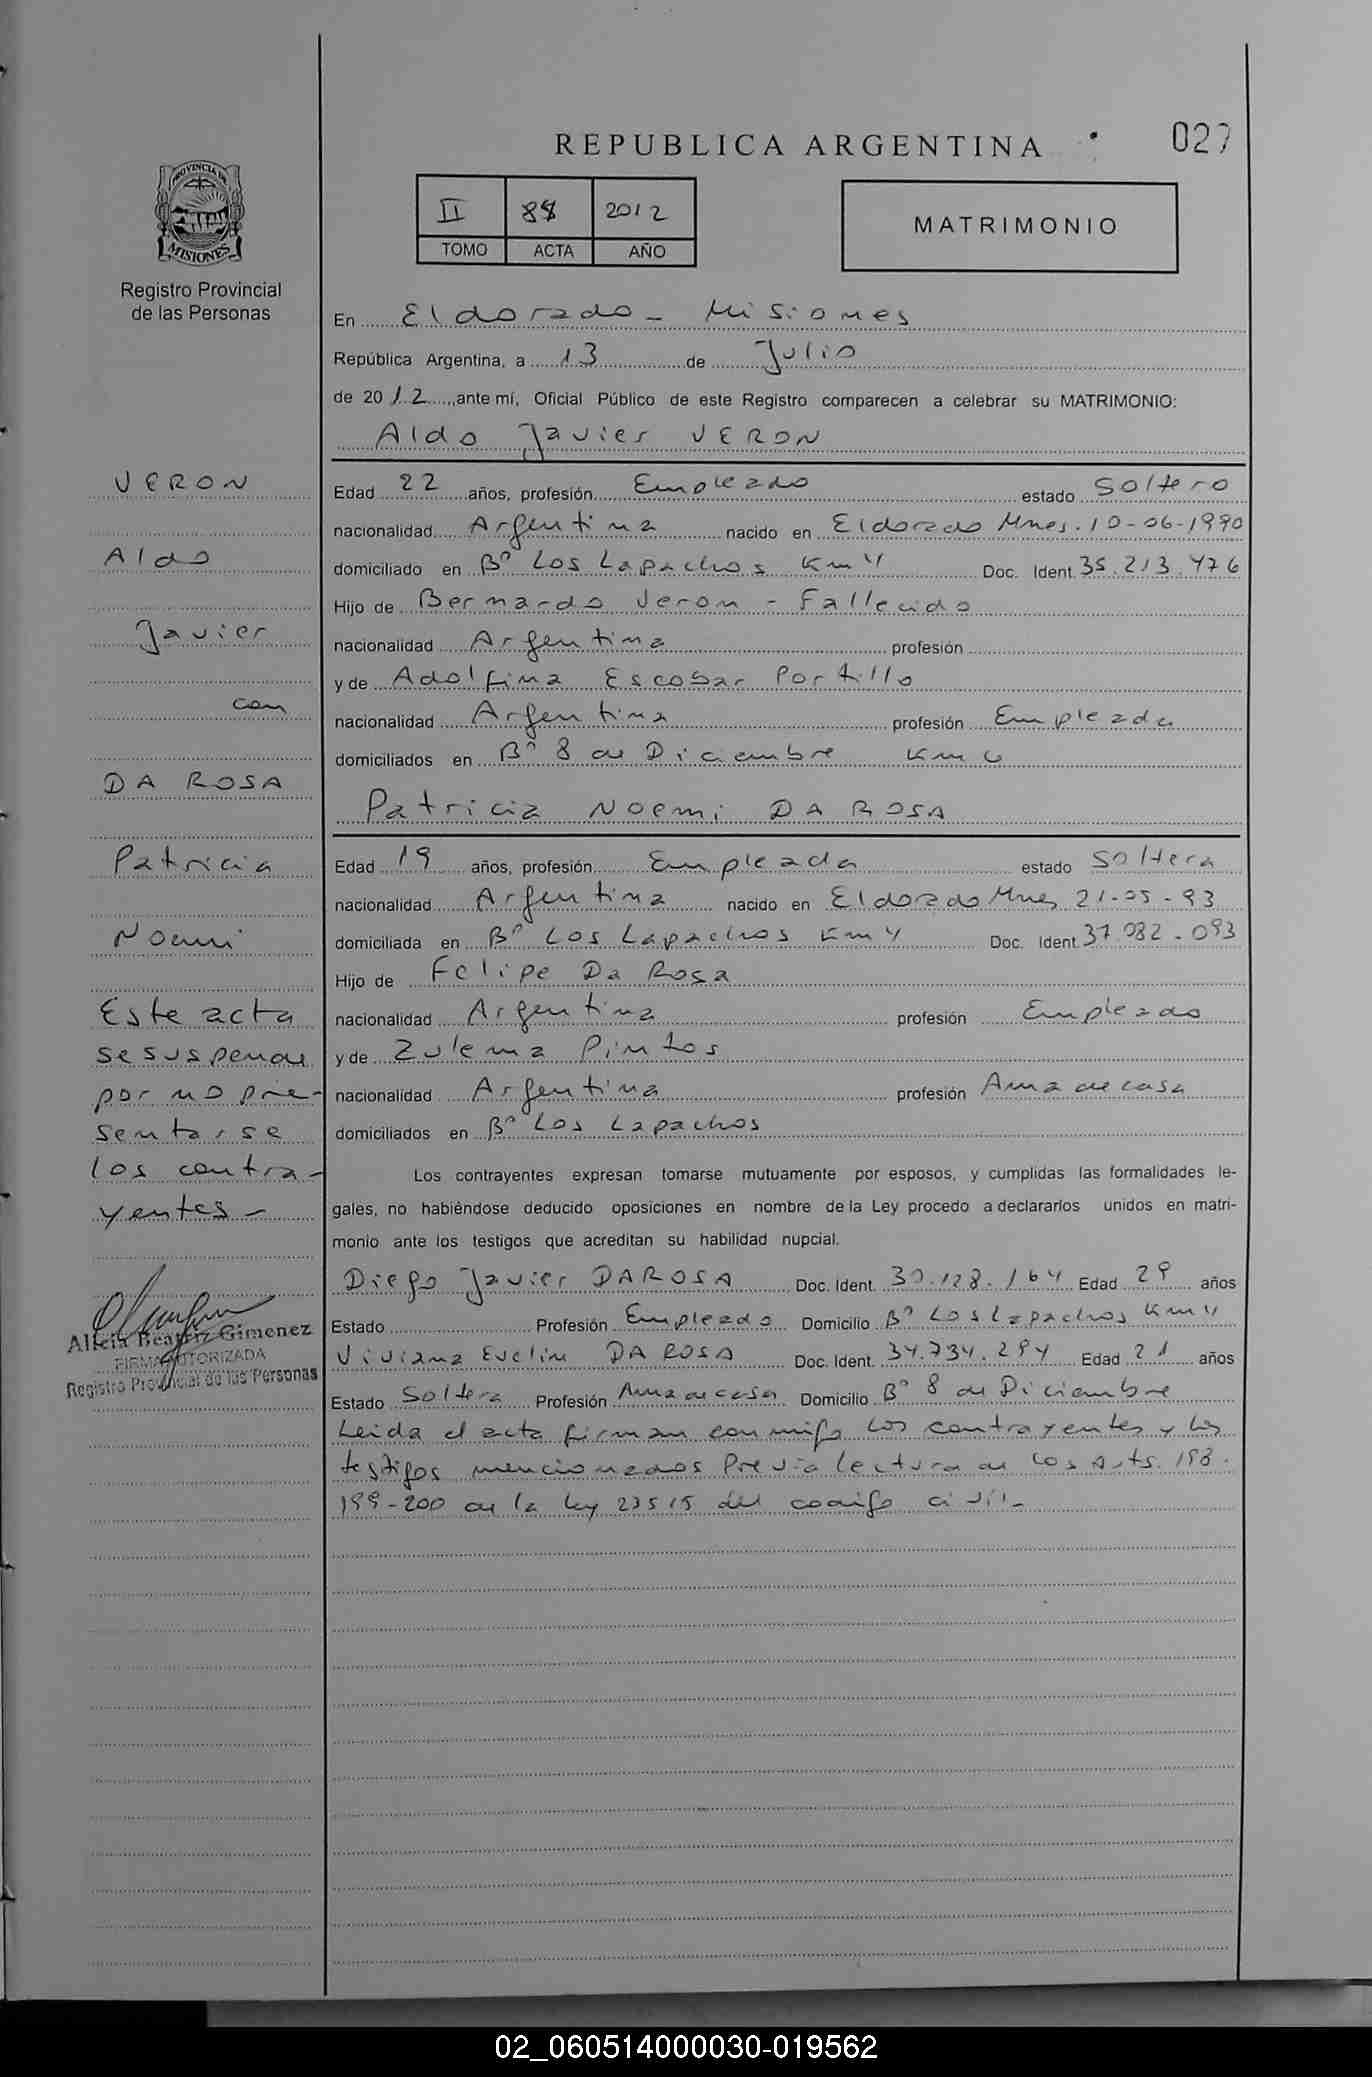 REPUBLICA ARGENTINA
027
PROVINCIA DE
MISIONES
Registro Provincial
de las Personas
II 2012
TOMO ACTA AÑO
MATRIMONIO
En Eldorado - Misiones
República Argentina, a 13 de Julio
de 2012, ante mí, Oficial Público de este Registro comparecen a celebrar su MATRIMONIO:
Aldo Javier VERON
Edad 22 años, profesión Empleado estado Soltero
nacionalidad Argentina nacido en Eldorado Mnes. 10-06-1990
domiciliado en Bº Los Lapachos Km 4 Doc. Ident. 35.213.476
Hijo de Bernardo Veron - Fallecido
nacionalidad Argentina profesión
y de Adolfina Escobar Portillo
nacionalidad Argentina profesión Empleada
domiciliados en Bº 8 de Diciembre Km
Patricia Noemi DA ROSA
Edad 19 años, profesión Empleada estado Soltera
nacionalidad Argentina nacido en Eldorado Mnes 21-05-93
domiciliada en Bº Los Lapachos Km 4 Doc. Ident. 37.082.093
Hijo de Felipe Da Rosa
nacionalidad Argentina profesión Empleado
y de Zulema Pintos
nacionalidad Argentina profesión Ama de casa
domiciliados en Bº Los Lapachos
Los contrayentes expresan tomarse mutuamente por esposos, y cumplidas las formalidades le-
gales, no habiéndose deducido oposiciones en nombre de la Ley procedo a declararlos unidos en matri-
monio ante los testigos que acreditan su habilidad nupcial.
Diego Javier DA ROSA Doc. Ident. 30.128.164 Edad 29 años
Estado Profesión Empleado Domicilio Bº Los Lapachos Km 4
Viviana Evelin DA ROSA Doc. Ident. 34.734.294 Edad 21 años
Estado Soltera Profesión Ama de casa Domicilio Bº 8 de Diciembre
Leida el acta firman conmigo los contrayentes y los
testigos mencionados Previa lectura de los Arts. 198.
199-200 de la ley 23515 del codigo civil-
VERON
Aldo
Javier
con
DA ROSA
Patricia
Noemi
Este acta
se suspende
por no pre-
sentarse
los contra-
yentes-
Alicia Beatriz Gimenez
FIRMA AUTORIZADA
Registro Provincial de las Personas
02_060514000030-019562